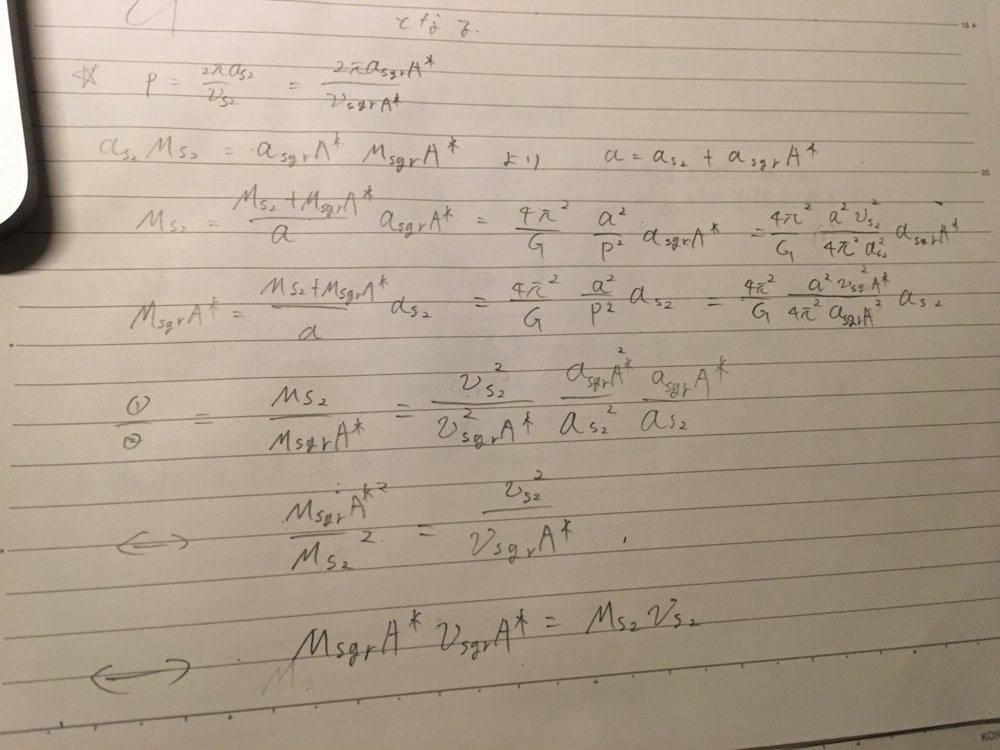 とする.
☆ P = 2πa_{S2}/v_{S2} = 2πa_{sgrA*}/v_{sgrA*}
a_{S2} M_{S2} = a_{sgrA*} M_{sgrA*} より a = a_{S2} + a_{sgrA*}
M_{S2} = (M_{S2}+M_{sgrA*})/a a_{sgrA*} = 4π²/G a²/P² a_{sgrA*} = 4π²/G a²v_{S2}²/4π²a_{S2}² a_{sgrA*}
M_{sgrA*} = (M_{S2}+M_{sgrA*})/a a_{S2} = 4π²/G a²/P² a_{S2} = 4π²/G a²v_{sgrA*}²/4π²a_{sgrA*}² a_{S2}
①/② = M_{S2}/M_{sgrA*} = v_{S2}²/v_{sgrA*}² a_{sgrA*}²/a_{S2}² a_{sgrA*}/a_{S2}
⟷ M_{sgrA*}²/M_{S2}² = v_{S2}²/v_{sgrA*}
⟷ M_{sgrA*} v_{sgrA*} = M_{S2} v_{S2}
15
20
KO